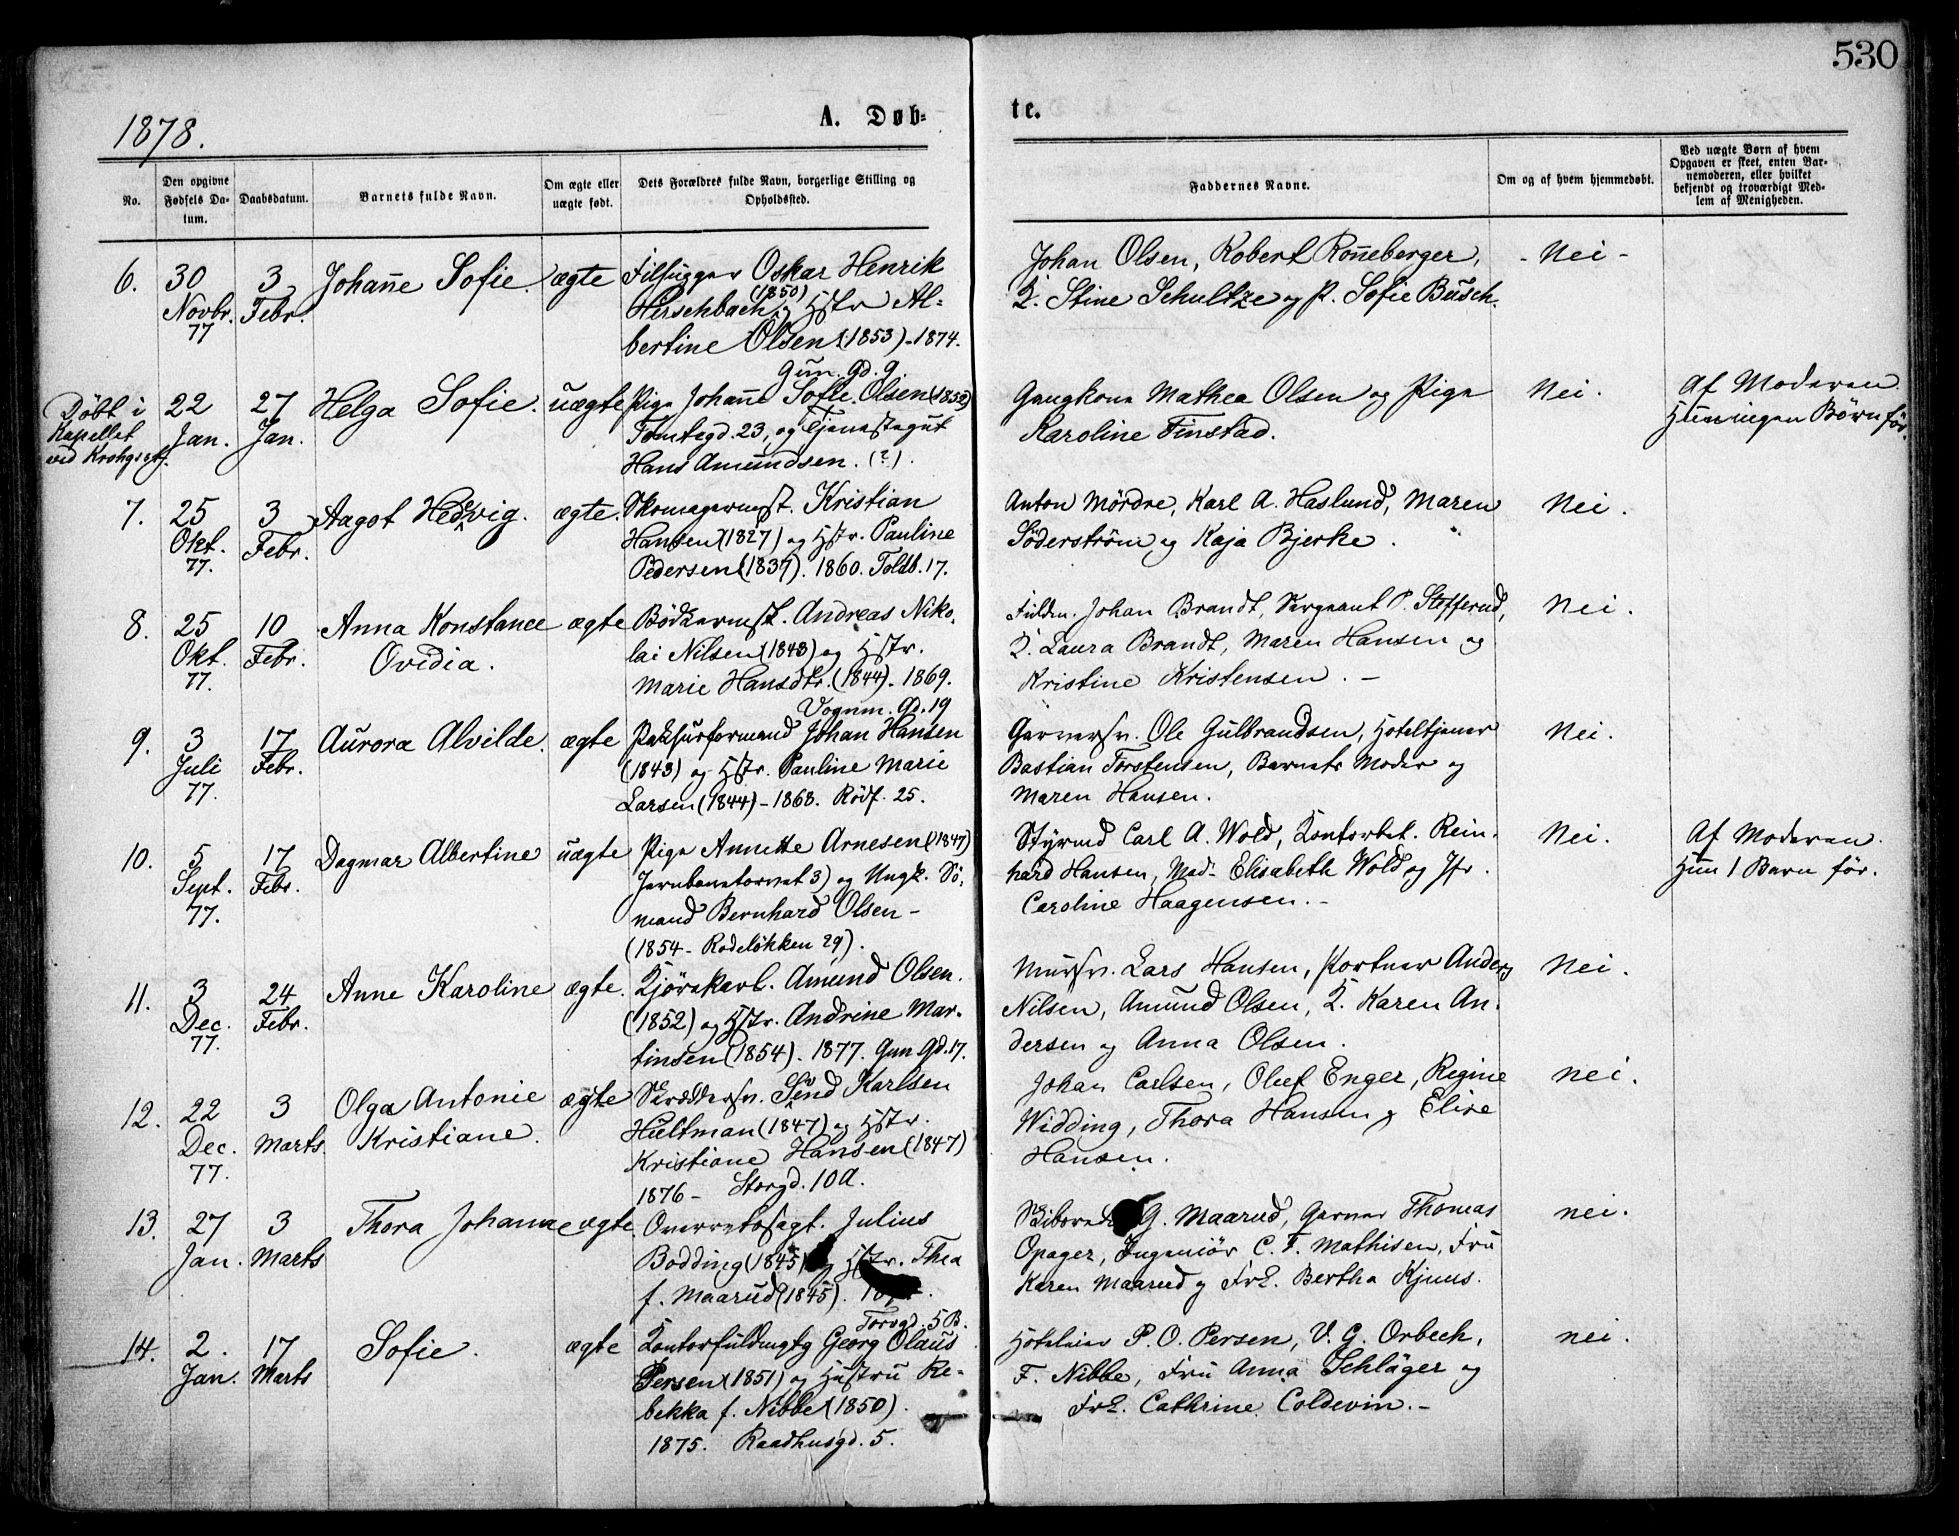 530
1878.
A. Døb-
te.
No.
Den opgivne Fødsels Datum.
Daabsdatum.
Barnets fulde Navn.
Om ægte eller uægte født.
Dets Forældres fulde Navn, borgerlige Stilling og Opholdssted.
Faddernes Navne.
Om og af hvem hjemmedøbt.
Ved uægte Børn af hvem Opgaven er skeet, enten Barnemoderen, eller hvilket bekjendt og troværdigt Medlem af Menigheden.
6. 30 Novbr. 77
3 Febr.
Johan̄e Sofie. ægte
Filhugger Oskar Henrik
Hirschbach (1850) og Hstr Al-
bertine Olsen (1853) - 1874.
Grun. gd. 9.
Johan Olsen, Robert Ron̄eberger,
K. Stine Schultze og P. Sofie Busch.
- Nei -
Døbt i Kapellet ved Krohgstøt.
22 Jan.
27 Jan.
Helga Sofie. uægte
Pige Johan̄e Sofie Olsen (1852)
Tomtegd. 23, og Tjenestegut
Hans Amundsen. (?).
Gangkone Mathea Olsen og Pige
Karoline Finstad.
Nei.
Af Moderen.
Hun ingen Børn før.
7. 25 Okt. 77.
3 Febr.
Aagot Hedvig. ægte.
Skomagermst. Kristian
Hansen (1827) og Hstr. Pauline
Pedersen (1837). 1860. Toldb. 17.
Anton Mördre, Karl A. Haslund, Maren
Söderström og Kaja Bjerke.
Nei.
8. 25 Okt. 77.
10 Febr.
Anna Konstance ægte
Ovidia.
Bödkermst. Andreas Niko-
lai Nilsen (1843) og Hstr.
Marie Hansdtr. (1844). 1869.
Vognm. gd. 19
Fuldm. Johan Brandt, Sergeant P. Stefferud,
K. Laura Brandt, Maren Hansen og
Kristine Kristensen. -
Nei.
9. 3 Juli 77.
17 Febr.
Aurora Alvilde. ægte
Pakhusformand Johan Hansen
(1843) og Hstr. Pauline Marie
Larsen (1844) - 1868. Rödf. 25.
Garversv. Ole Gulbrandsen, Hoteltjener
Bastian Torstensen, Barnets Moder og
Maren Hansen.
Nei.
10. 5 Sept. 77.
17 Febr.
Dagmar Albertine uægte
Pige Annette Arnesen (1847)
Jernbanetorvet 3) og Ungk. Sö-
mand Bernhard Olsen -
(1854 - Rodeløkken 29).
Styrmd Carl A. Wold, Kontorbet. Rein-
hard Hansen, Mad. Elisabeth Wold og Jfr.
Caroline Haagensen. -
Nei.
Af Moderen.
Hun 1 Barn før.
11. 3 Dec. 77.
24 Febr.
Anne Karoline ægte.
Kjörekarl. Amund Olsen.
(1852) og Hstr. Andrine Mar-
tinsen (1854). 1877. Grun gd. 17.
Mursv. Lars Hansen, Portner Anders
Nilsen, Amund Olsen, K. Karen An-
dersen og Anna Olsen.
Nei.
12. 22 Dec. 77.
3 Marts.
Olga Antonie ægte
Kristiane.
Skræddersv. Svend Karlsen
Hultman (1847) og Hstr.
Kristiane Hansen (1847)
1876 - Storgd. 10A.
Johan Carlsen, Oluf Enger, Regine
Widding, Thora Hansen og Elise
Hansen.
Nei.
13. 27 Jan.
3 Marts
Thora Johanne ægte.
Overretssagf. Julius
Bodding (1845) og Hstr. Thea
f. Maarud (1845).
Torvgd. 5 B.
G. Maarud, Garver Thomas
Opager, Ingeniör C. F. Mathisen, Fru
Karen Maarud og Frk. Bertha Kjuus.
nei.
14. 2. Jan.
17 Marts
Sofie. ægte
Kontorfuldmgtg Georg Olaus
Persen (1851) og Hustru Re-
bekka f. Nibbe (1850).
1875. Raadhusgd. 5.
Hoteleier P. O. Persen, V. G. Orbech,
F. Nibbe, Fru Anna Schläger og
Frk. Cathrine Coldevin. -
nei.